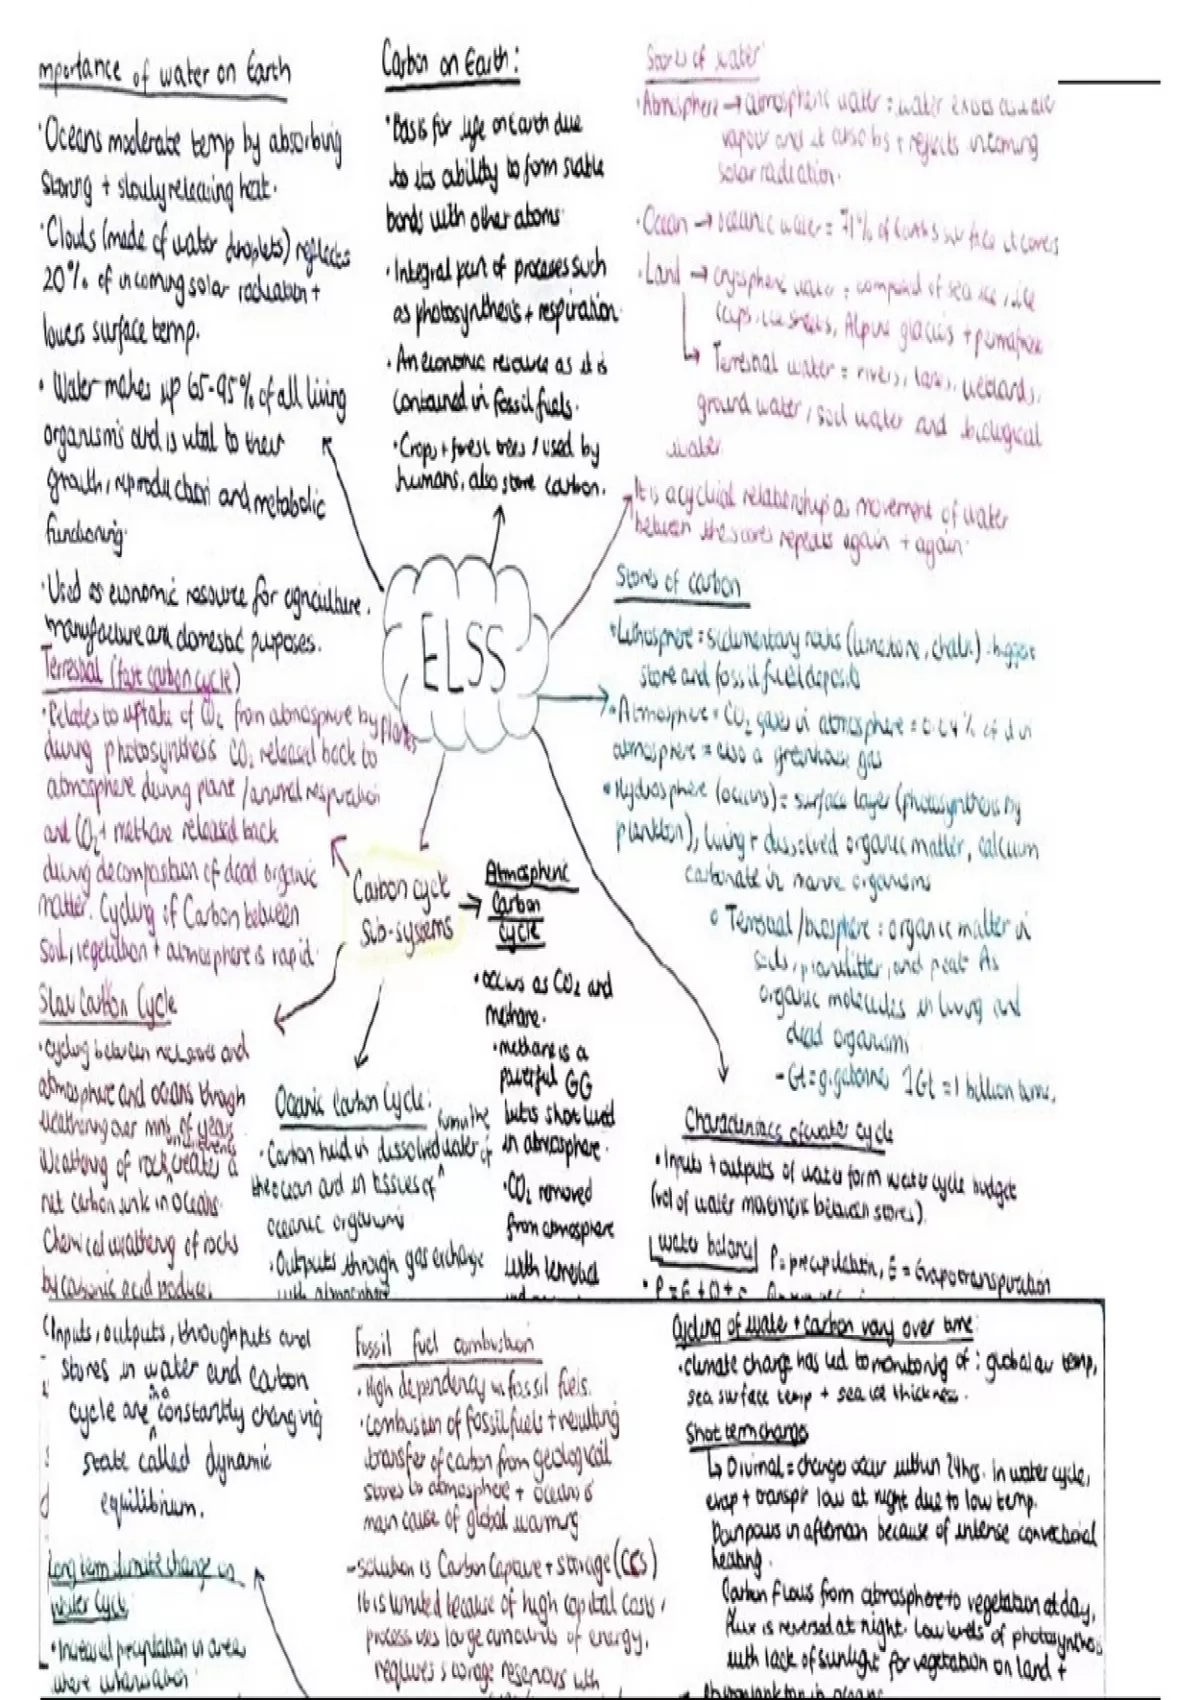 mportance of water on Earth
·Oceans moderate temp by absorbing
storing + slowly releasing heat.
·Clouds (made of water droplets) reflects
20% of incoming solar radiation +
lowers surface temp.
· Water makes up 65-95% of all living
organisms and is vital to their
growth, reproduction and metabolic
functioning.
·Used as economic resource for agriculture,
manufacture and domestic purposes.
Carbon on Earth:
·Basis for life on Earth due
to its ability to form stable
bonds with other atoms.
·Integral part of processes such
as photosynthesis + respiration.
·An economic resource as it is
contained in fossil fuels.
·Crops + forest trees, used by
humans, also store carbon.
Stores of water
·Atmosphere → atmospheric water = water exists as
vapour and it absorbs + reflects incoming
solar radiation.
·Ocean → oceanic water = 71% of Earth's surface it covers
·Land → cryosphere water = composed of sea ice, ice
caps, ice sheets, Alpine glaciers + permafrost
↳ Terrestrial water = rivers, lakes, wetlands,
ground water, soil water and biological
water.
It is a cyclical relationship as movement of water
between the stores repeats again + again.
ELSS
Stores of carbon
·Lithosphere = sedimentary rocks (limestone, chalk) biggest
store and fossil fuel deposits
·Atmosphere = CO2 gases in atmosphere = 0.04% of it in
atmosphere = also a greenhouse gas
·Hydrosphere (oceans) = surface layer (photosynthesis by
plankton), living + dissolved organic matter, calcium
carbonate in marine organisms
○ Terrestrial/biosphere = organic matter in
soils, plant litter, and peat. As
organic molecules in living and
dead organisms
- Gt = gigatonnes 1Gt = 1 billion tonnes.
Terrestrial (fast carbon cycle)
·Relates to uptake of CO2 from atmosphere by plants
during photosynthesis CO2 released back to
atmosphere during plant/animal respiration
and CO2 + methane released back
during decomposition of dead organic
matter. Cycling of Carbon between
soil, vegetation + atmosphere is rapid.
Carbon cycle
sub-systems
Atmospheric
Carbon
Cycle
·occurs as CO2 and
methane.
·methane is a
powerful GG
but is short lived
in atmosphere.
·CO2 removed
from atmosphere
with terrestrial
Slow Carbon Cycle
·cycling between rocks and
atmosphere and oceans through
weathering over mns of years
Weathering of rock creates a
net carbon sink in oceans.
Chemical weathering of rocks
by carbonic acid produces
Oceanic Carbon Cycle:
·Carbon held in dissolved water of
the ocean and in tissues of
oceanic organisms
·Outputs through gas exchange
with atmosphere
Characteristics of water cycle
·Inputs + outputs of water form water cycle budget
(vol of water movement between stores).
water balance P = precipitation, E = Evapotranspiration
·P = E + Q +
Inputs, outputs, throughputs and
stores in water and carbon
cycle are in a constantly changing
state called dynamic
equilibrium.
Long term climate change on
water cycle
·Increased precipitation in areas
where
Fossil fuel combustion
·High dependency in fossil fuels.
·Combustion of fossil fuels + resulting
transfer of carbon from geological
stores to atmosphere + oceans is
main cause of global warming
-Solution is Carbon Capture + Storage (CCS)
It is limited because of high capital costs,
process uses large amounts of energy,
requires storage reservoirs with
Cycling of water + carbon vary over time:
·climate change has led to monitoring of: global air temp,
sea surface temp + sea ice thickness.
Short term change
↳ Diurnal = changes occur within 24hrs. In water cycle,
evap + transpir low at night due to low temp.
Downpours in afternoon because of intense convectional
heating.
Carbon flows from atmosphere to vegetation at day,
flux is reversed at night. Low levels of photosynthesis
with lack of sunlight for vegetation on land +
phytoplankton in oceans